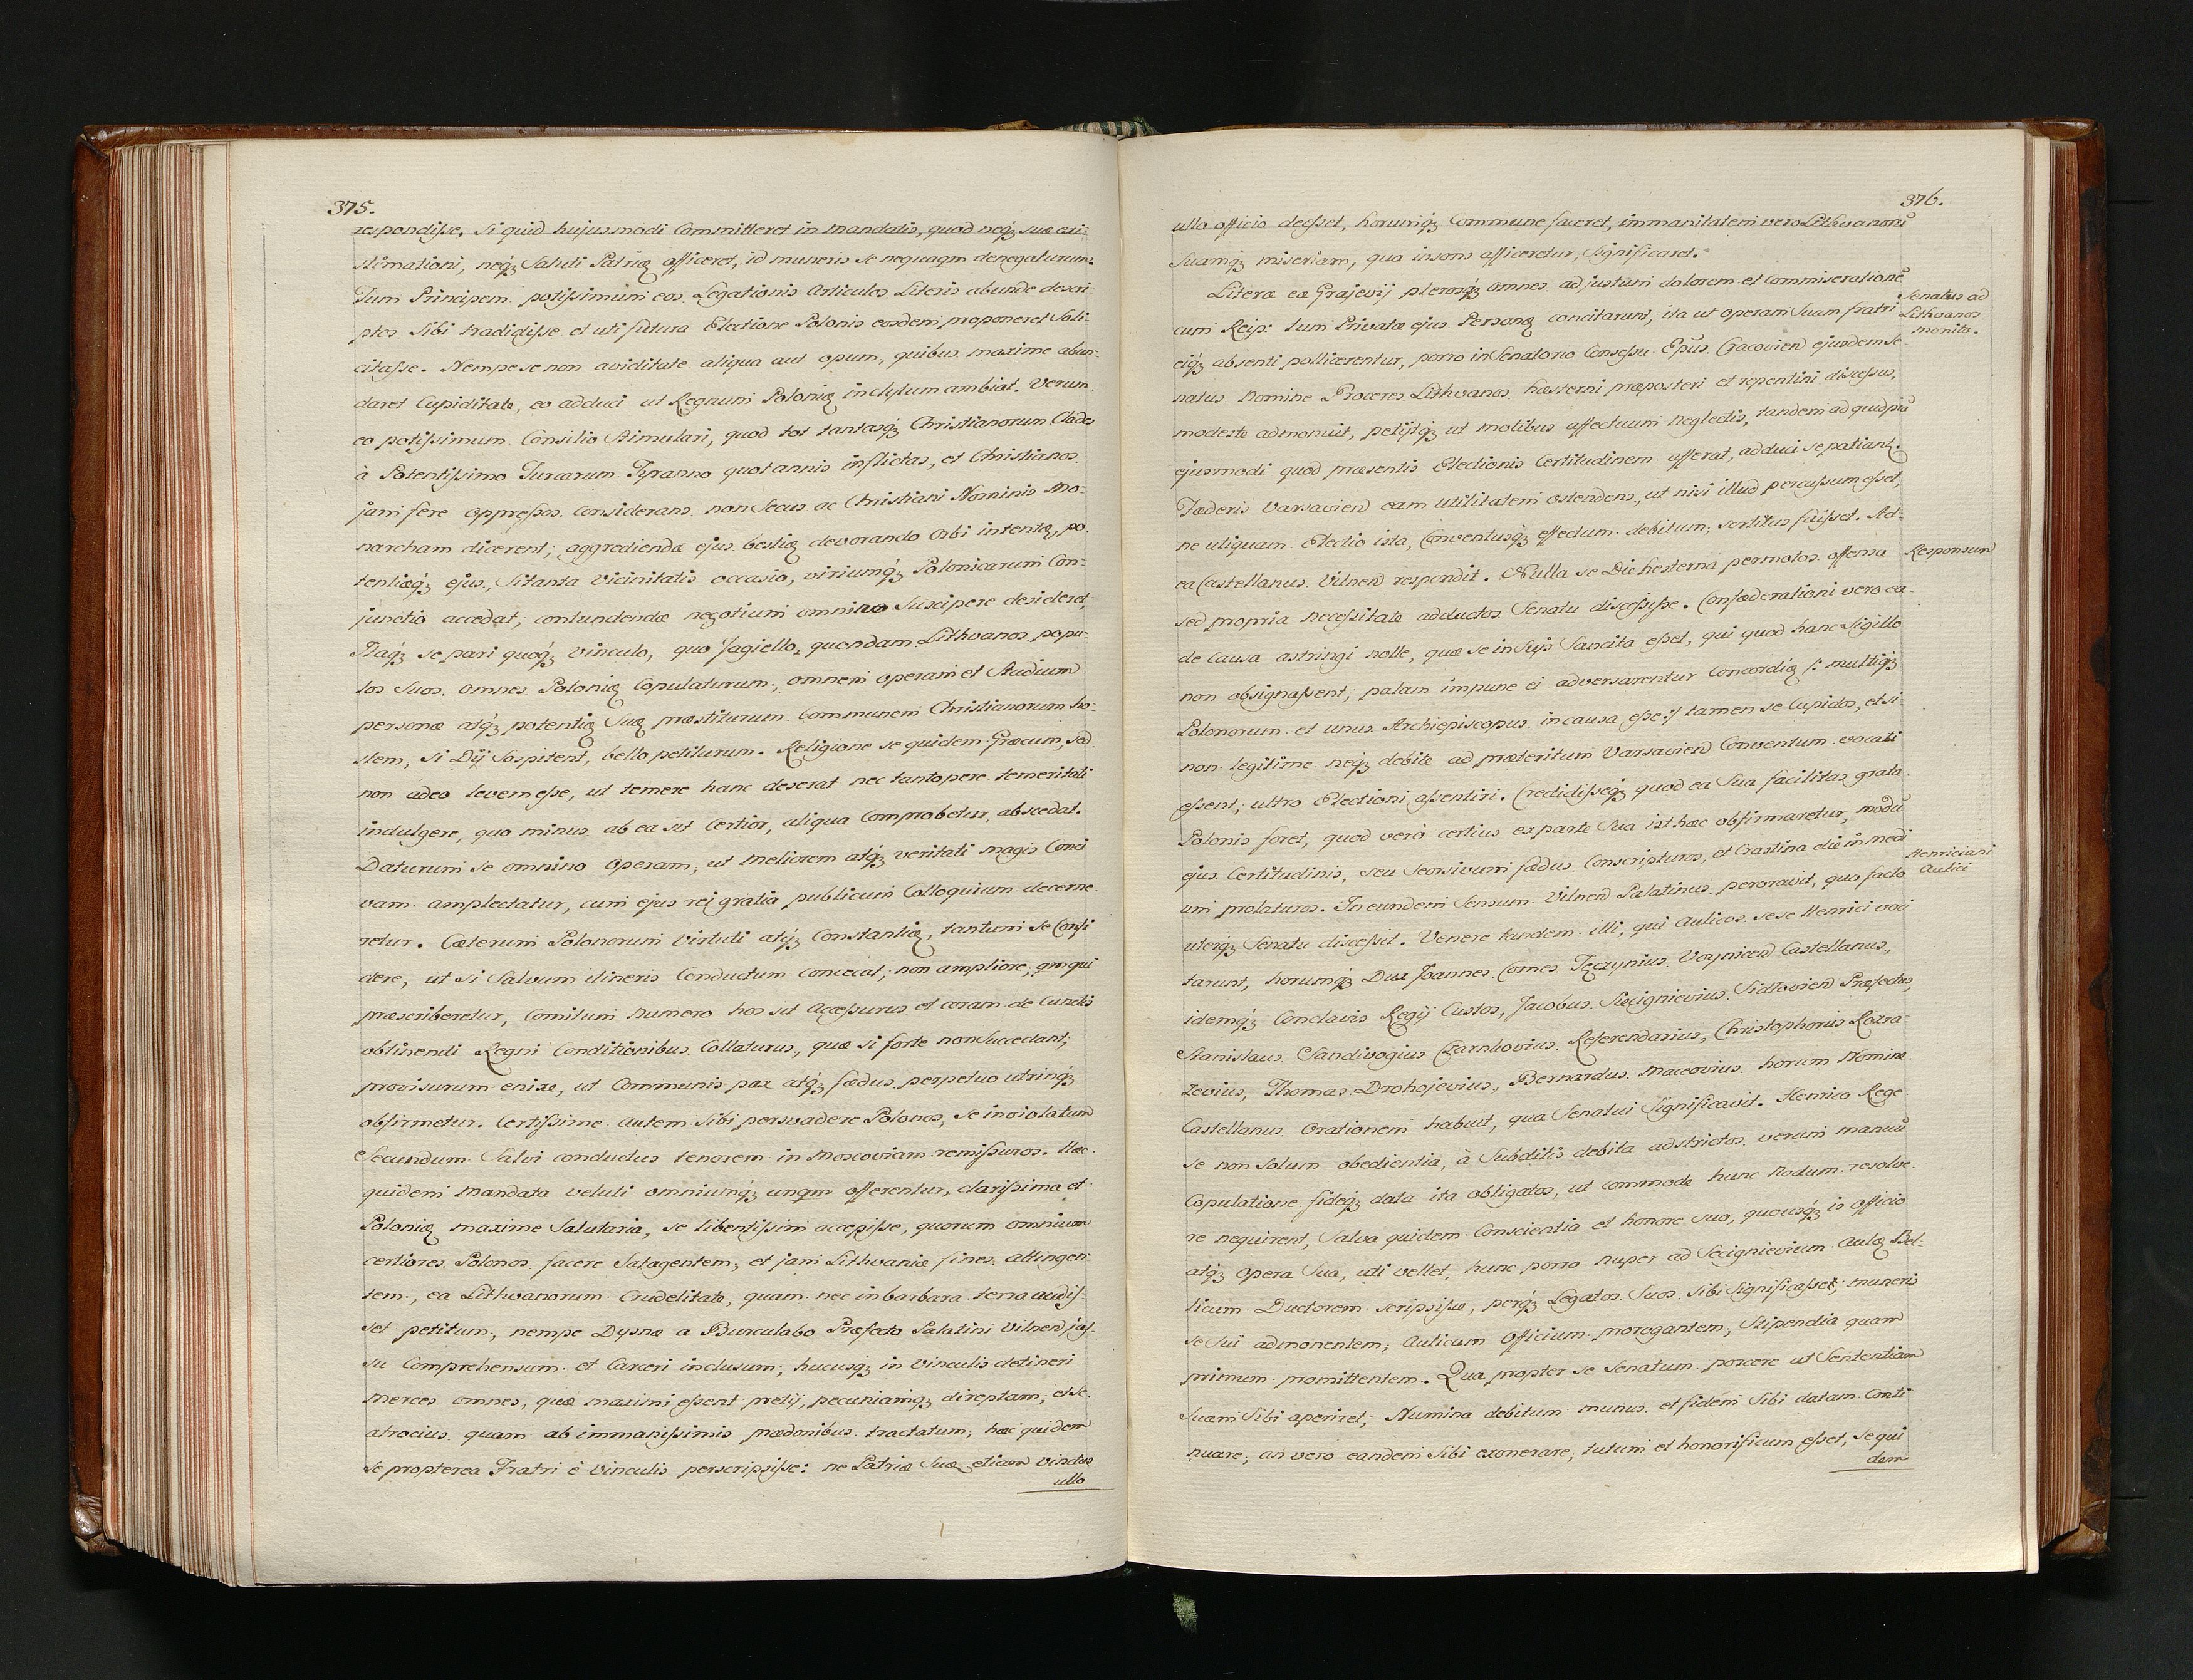 375.
respondisse, si quid hujusmodi Committeret in mandatis, quod neq́ʒ suæ exi-
stimationi, neq́ʒ Saluti Patriæ afficeret, id muneris se nequaqm denegaturum.
Tum Principem potissimum eos Legationis Articulos Literis abunde descri-
ptos Sibi tradidisse et uti futura Electione Polonis eosdem proponeret Soli-
citasse. Nempe se non aviditate aliqua aut opum, quibus maxime abun-
daret Cupiditate, eo adduci ut Regnum Poloniæ inclytum ambiat. Verum
eo potissimum Consilio Stimulari, quod tot tantasq́ʒ Christianorum Clades
à Potentissimo Turcarum Tyranno quotannis inflictas, et Christianos
jam fere oppressos considerans non Secus ac Christiani Nominis Mo-
narcham dicerent; aggrediendæ ejus bestiæ devorando Orbi intentæ, po-
tentiæq́ʒ ejus, Si tanta Vicinitatis occasio, viriumq́ʒ Polonicarum Con-
junctio accedat, contundendæ negotium omnino Suscipere desideret,
Itaq́ʒ se pari quoq́ʒ Vinculo, quo Jagiello, quondam Lithvanos popu-
los Suos omnes Poloniæ Copulaturum, omnem operam et Studium
personæ atq́ʒ potentiæ Suæ præstiturum Communem Christianorum ho-
stem, si Dij Sospitent, bello petiturum. Religione se quidem Græcum, sed
non adeo levem esse, ut temere hanc deserat nec tantopere temeritati
indulgere, quo minus ab ea sit Certior, aliqua Comprobetur, abscedat.
Daturum se omnino Operam, ut meliorem atq́ʒ veritati magis Conci
vam amplectatur, cum ejus rei gratia publicum Colloquium decerne-
retur. Cæterum Polonorum Virtuti atq́ʒ Constantiæ, tantum se Confi
dere, ut si Salvum itineris Conductum concedat, non ampliore, qm qui
præscriberetur, Comitum numero hos sit Accessurus et coram de Cunctis
obtinendi Regni Conditionibus Collaturus, quæ si forte non Succedant,
provisurum enixe, ut Communis pax atq́ʒ fædus perpetuo utrinq́ʒ
obfirmetur. Certissime autem Sibi persvadere Polonos, se inviolatum
Secundum Salvi conductus tenorem in Moscoviam remissuros. Hæc
quidem Mandata veluti omniumq́ʒ unqm offerentur, clarissima et
Poloniæ maxime Salutaria, se libentissim accepisse, quorum omnium
certiores Polonos facere Satagentem, et jam Lithvaniæ fines attingen-
tem, ea Lithvanorum Crudelitate, quam nec in barbara terra audis-
set petitum, nempe Dysnæ a Burculabo Præfecto Palatini Vilnen jus-
su Comprehensum et Carceri inclusum, hucusq́ʒ in Vinculis detineri
merces omnes, quæ maximi essent pretij, pecuniamq́ʒ direptam, et se
atrocius quam ab immanissimis prædonibus tractatum, hæc quidem
se propterea Fratri è Vinculis perscripsisse: ne Patriæ Suæ etiam vinctus
ullo
376.
ullo officio deesset, horumq́ʒ Commune faceret, immanitatem vero Lithvanorū
Suamq́ʒ miseriam, qua insons afficeretur, Significaret.
Literæ eæ Grajevij plerosq́ʒ omnes ad justum dolorem et commiserationē
cum Reip: tum Privatæ ejus Personæ concitarunt, ita ut operam Suam fratri
eiq́ʒ absenti pollicerentur, porro in Senatorio Consessu Epūs Cracovien ejusdem Se-
natus Nomine Proceres Lithvanos hæsterni præposteri et repentini discessus,
modeste admonuit, petijtq́ʒ ut motibus affectuum neglectis, tandem ad quidpiā
ejusmodi quod præsentis Electionis Certitudinem afferat, adduci se patiant.
Fæderis Varsavien eam utilitatem ostendens, ut nisi illud percussum esset,
ne utiquam Electio ista, Conventusq́ʒ effectum debitum, sortitus fuisset. Ad-
ea Castellanus Vilnen respondit. Nulla se Die hesterna permotos offensa
sed propria necessitate adductos Senatu discessisse. Confæderationi vero ea-
de Causa astringi nolle, quæ se in Suis Sancita esset, qui quod hanc Sigillo
non obsignassent, palam impune ei adversarentur Concordiæ /: multiq́ʒ
Polonorum et unus Archiepiscopus in causa esse :/ tamen se Cupidos, et si-
non legitime neq́ʒ debite ad præteritum Varsavien Conventum vocati
essent, ultro Electioni assentiri. Credidisseq́ʒ quod ea Sua facilitas grata
Polonis foret, quod verò certius ex parte Sua isthæc obfirmaretur, modū
ejus Certitudinis, seu Seorsivum fædus Conscripturos, et Crastina die in medi
um prolaturos. In eundem Sensum Vilnen Palatinus peroravit, quo facto
uterq́ʒ Senatu discessit. Venere tandem illi, qui Aulicos sese Henrici voci
tarunt, horumq́ʒ Dux Joannes Comes Tęczynius Voynicen Castellanus,
idemq́ʒ Conclavis Regij Custos, Jacobus Secignievius Sidlovien Præfectus,
Stanislaus Sandivogius Czarnkovius Referendarius, Christophorus Rozra-
zevius, Thomas Drohojevius, Bernardus Maceovius horum Nomine
Castellanus Orationem habuit, qua Senatui Significavit. Henrico Rege
se non Solum obedientia, à Subditis debita adstrictos verum manuū
Copulatione fideq́ʒ data ita obligatos, ut commode hunc nodum resolve-
re nequirent, Salva quidem Conscientia et honore suo, quousq́ʒ is officio
atq́ʒ Opera Sua, uti vellet, hunc porro nuper ad Secignievium Aulæ Bel-
licum Ductorem scripsisse, perq́ʒ Legatos Suos Sibi Significasset, muneris
se sui admonentem, Aulicum Officium prorogantem, Stipendia quam
primum promittentem. Qua propter se Senatum poscere ut Sententiam
Suam Sibi aperiret, Numina debitum munus et fidem Sibi datam Conti
nuare, an vero eandem Sibi exonerare, tutum et honorificum esset, se qui
dem
Senatus ad
Lithvanos
monita.
Responsum
Henriciani
Aulici